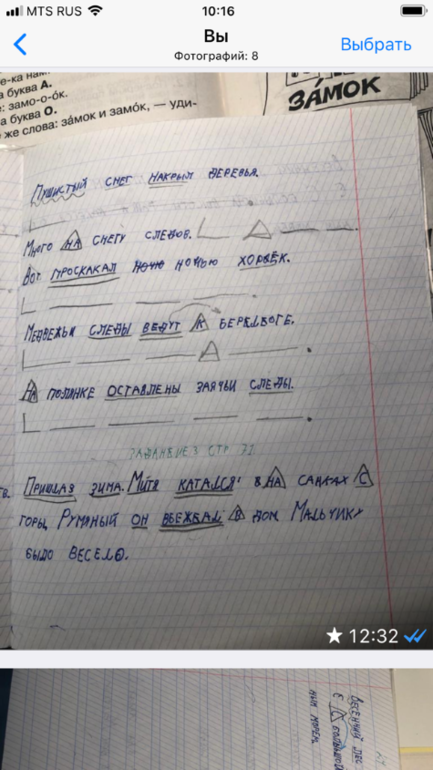 MTS RUS 10:16
Вы
Фотографий: 8
Выбрать
е-ка нам
а буква А.
: замо-о-óк.
а буква О.
же слова: зáмок и замóк, — уди-
ЗÁМОК
Пушистый снег накрыл деревья.
Много на снегу следов.
Вот проскакал ночью хорёк.
Медвежьи следы ведут к берлоге.
На полянке оставлены заячьи следы.
Задание 3 стр 71
Пришла зима. Митя катался на санках с
горы. Румяный он въежал в дом Мальчику
было весело.
★ 12:32
Весенний лес